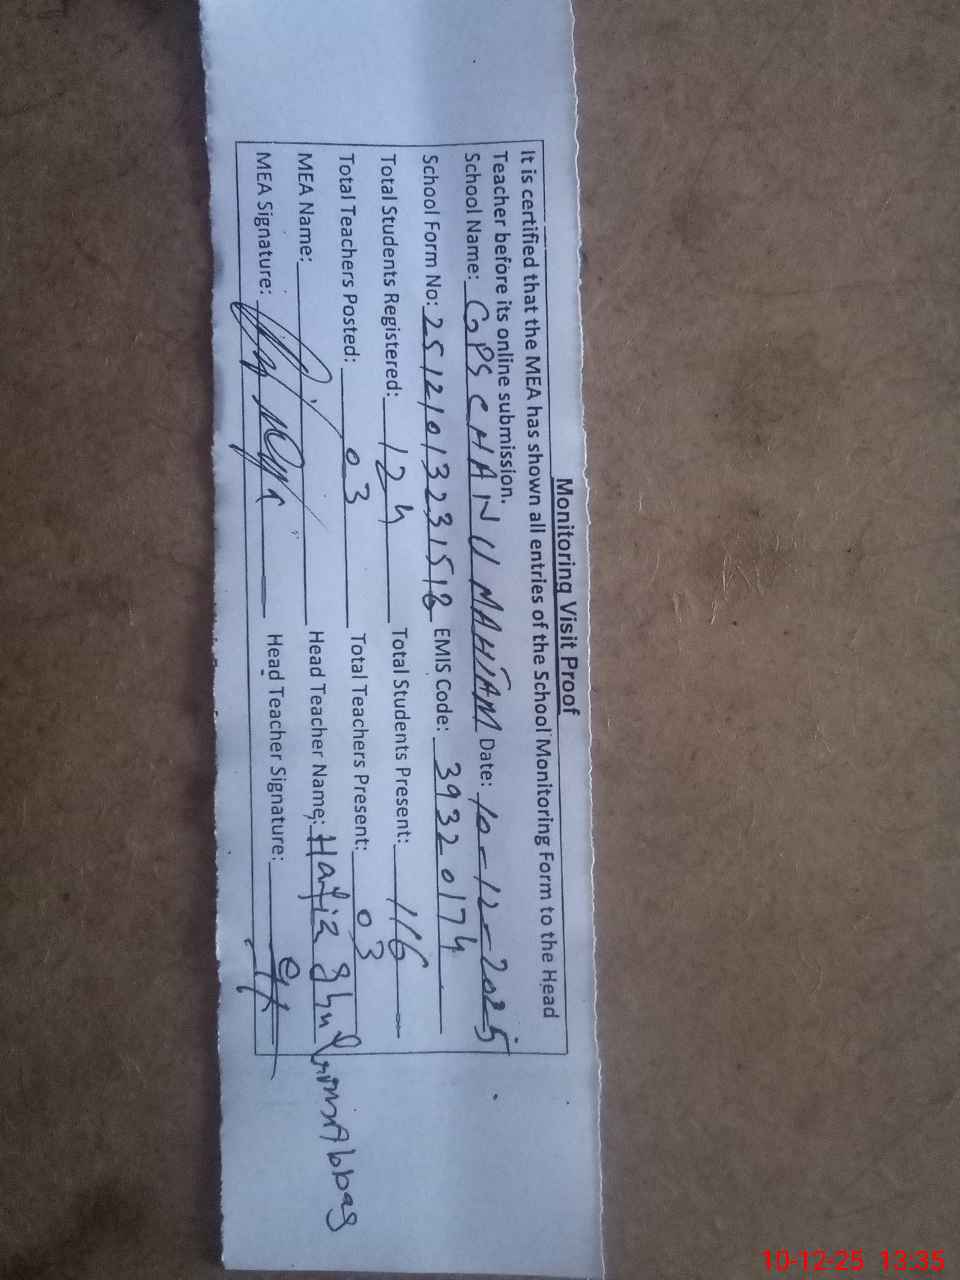 Monitoring Visit Proof
It is certified that the MEA has shown all entries of the School Monitoring Form to the Head
Teacher before its online submission.
School Name: GPS CHANU MAHIAM Date: 10-12-2025
School Form No: 2512101323151 EMIS Code: 39320174
Total Students Registered: 124 Total Students Present: 116
Total Teachers Posted: 03 Total Teachers Present: 03
MEA Name: Head Teacher Name: Hafiz Abbas
MEA Signature: Head Teacher Signature:
10-12-25 13:35